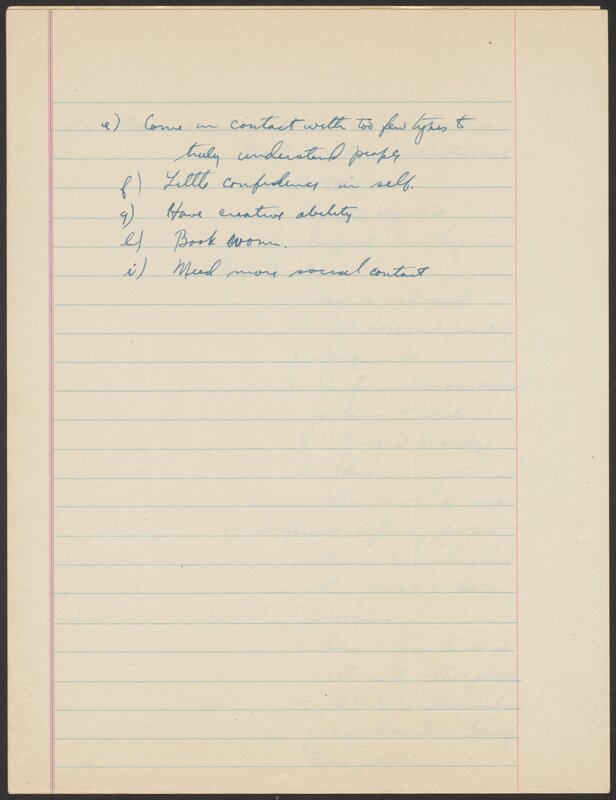 e) Come in contact with too few types to
truly understand people
f) Little confidence in self.
g) Have creative ability
h) Book worm.
i) Need more social contact